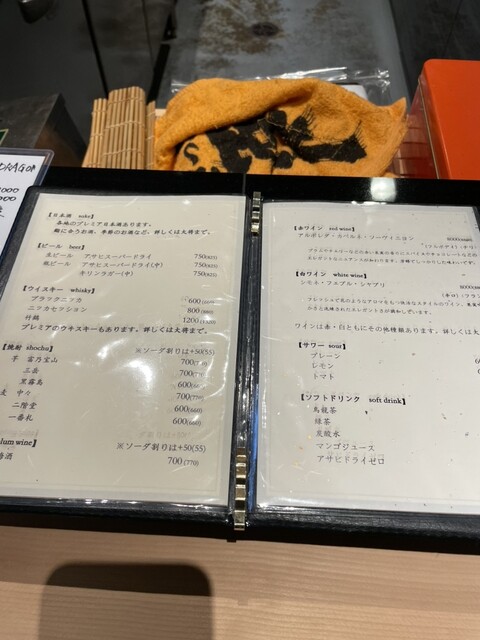 【日本酒 sake】
各地のプレミア日本酒あります。
鮨に合うお酒、季節のお酒など、詳しくは大将まで。
【ビール beer】
生ビール アサヒスーパードライ 750(825)
瓶ビール アサヒスーパードライ(中) 750(825)
キリンラガー(中) 750(825)
【ウイスキー whisky】
ブラックニッカ 600
ニッカセッション 800
竹鶴 1200
プレミアのウヰスキーもあります。詳しくは大将まで。
【焼酎 shochu】
※ソーダ割りは+50(55)
芋 富乃宝山 700
三岳 700
黒霧島 600
麦 中々 700
二階堂 600(660)
一番札 600(660)
lum wine】
※ソーダ割りは+55
※ソーダ割りは+50(55)
梅酒 700(770)
【赤ワイン red wine】
アルボレダ・カベルネ・ソーヴィニヨン 8000
【白ワイン white wine】
シモネ・フェブル・シャブリ
ワインは赤・白ともにその他種類あります。詳しくは大
【サワー sour】
プレーン
レモン
トマト
【ソフトドリンク soft drink】
烏龍茶
緑茶
炭酸水
マンゴジュース
アサヒドライゼロ